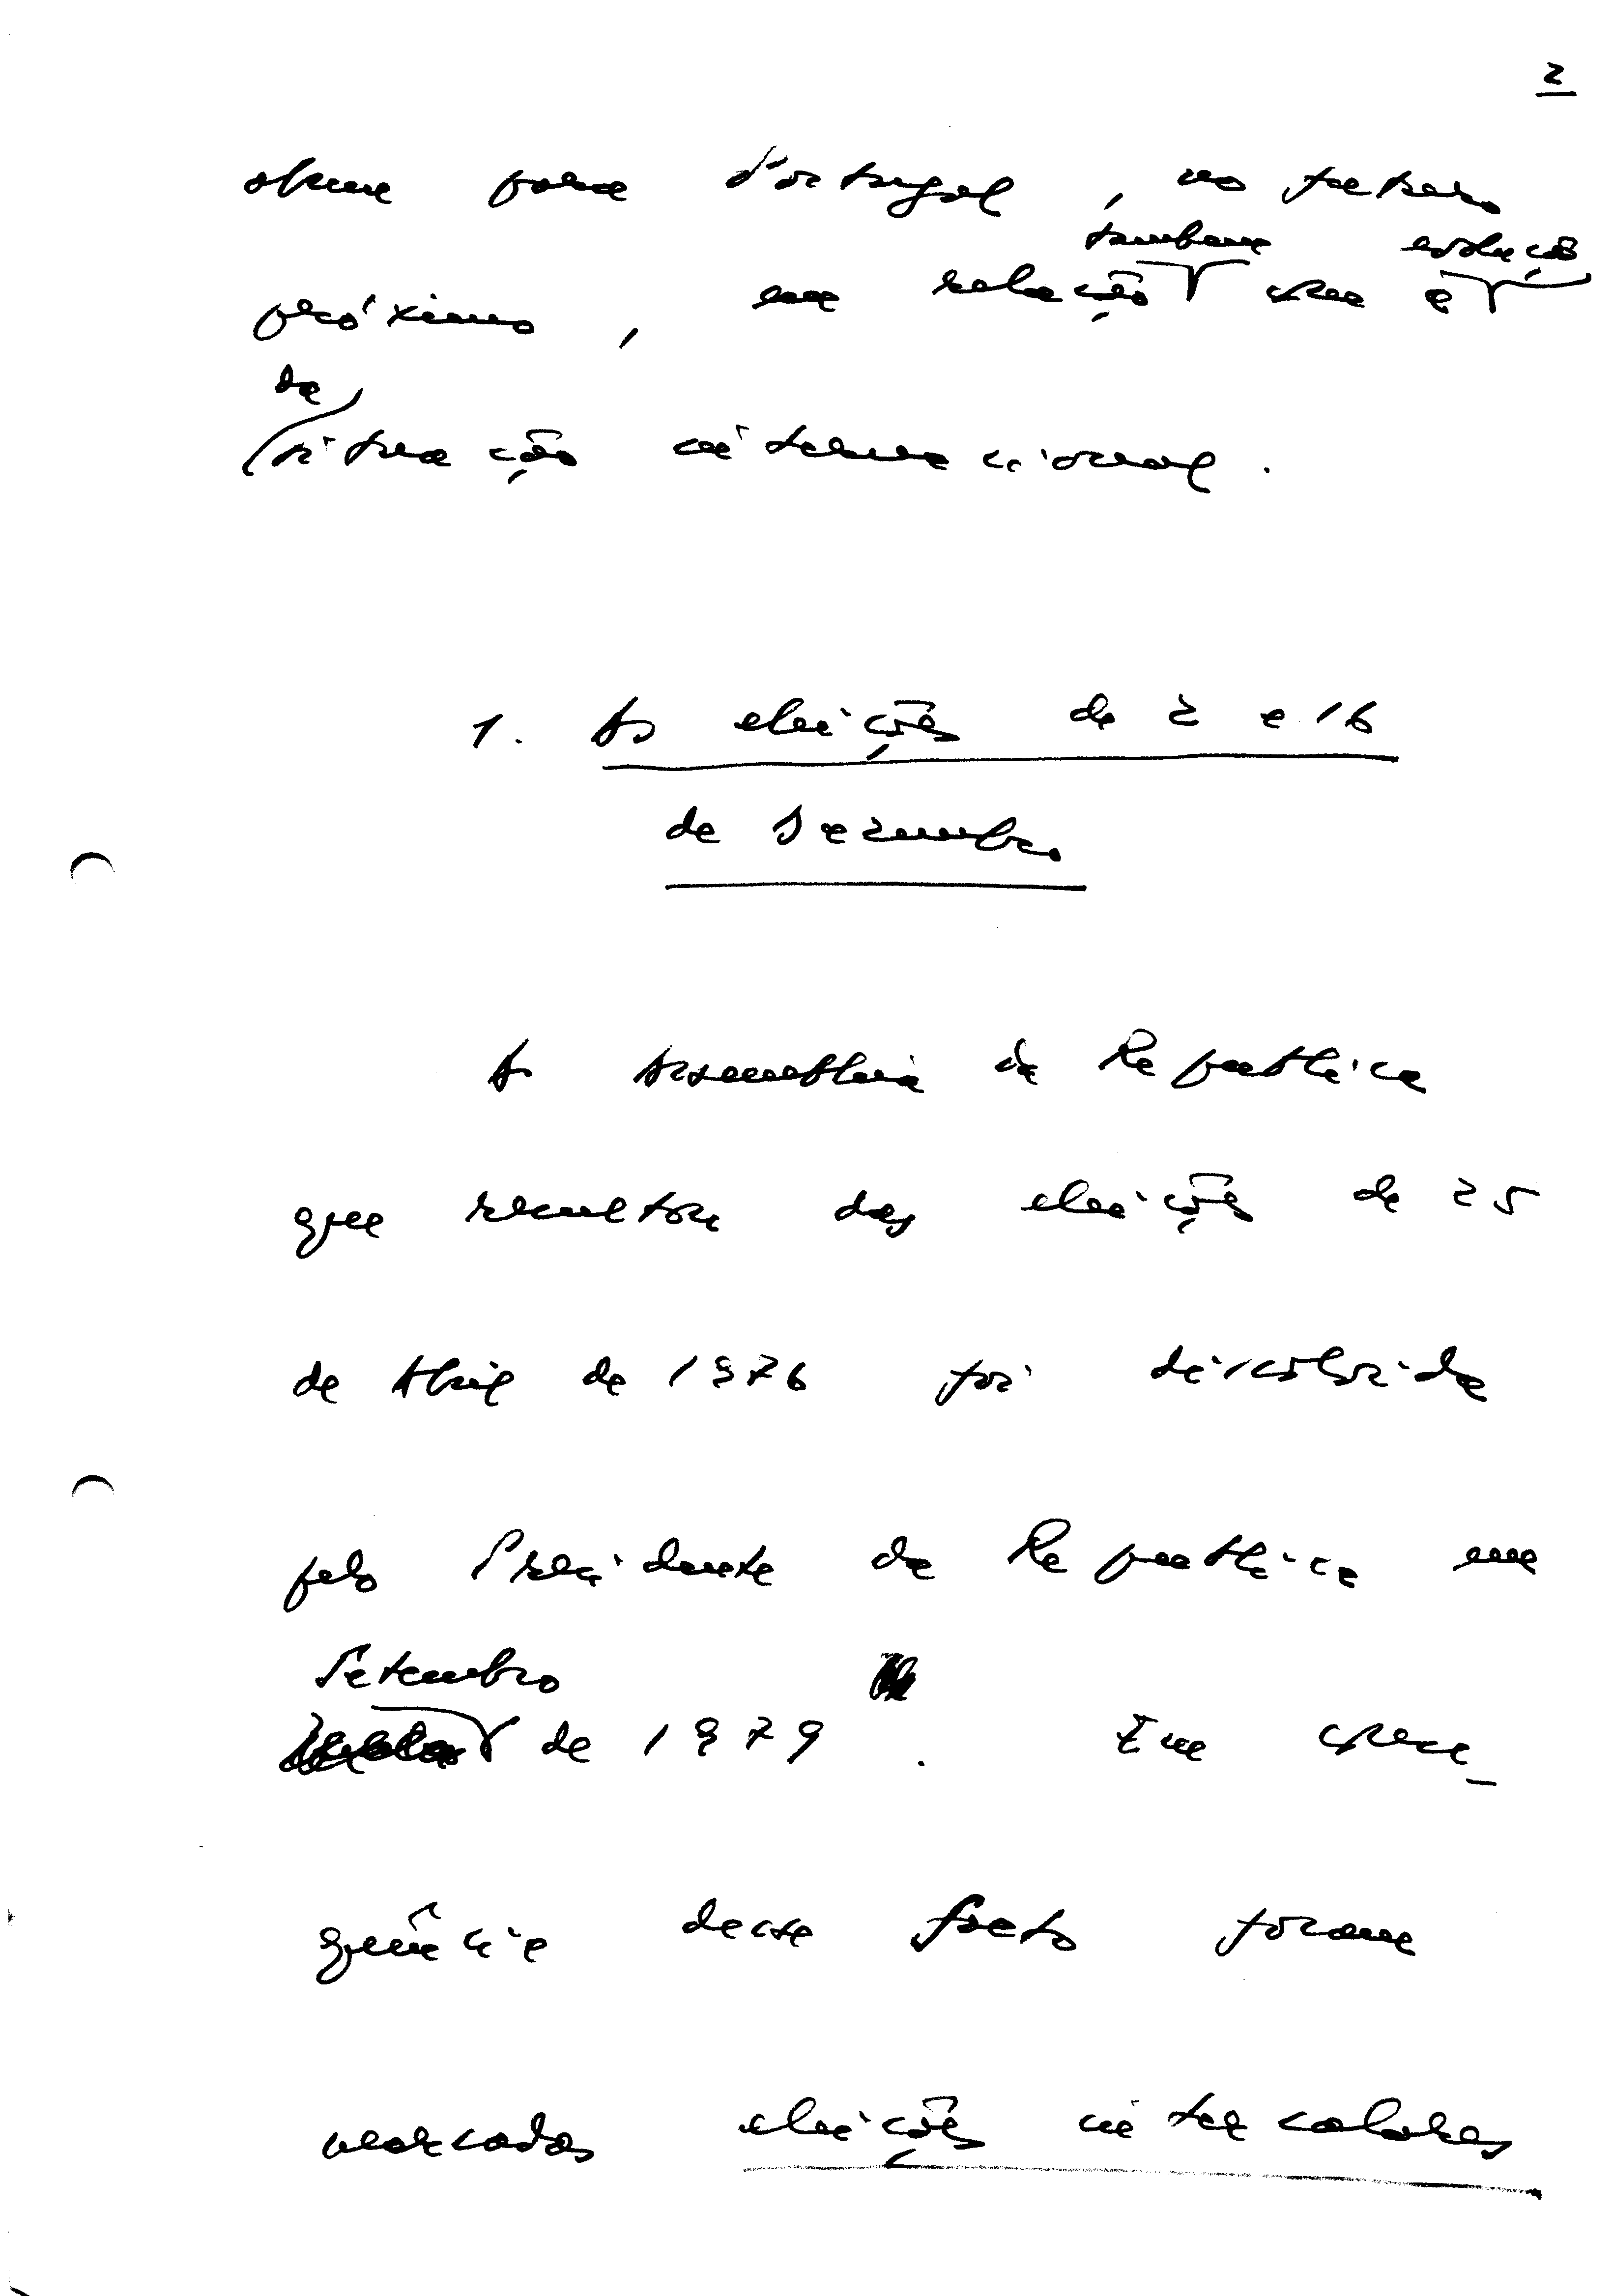 2
abrem para Portugal, no futuro
também evolução
próximo, em relação com a
da
situação internacional.
1. As eleições de 2 e 16
de Dezembro
A Assembleia da República
que resultou das eleições de 25
de Abril de 1976 foi dissolvida
pelo Presidente da República em
Setembro
de 1979. Em conse_
quência deste facto foram
marcadas eleições intercalares